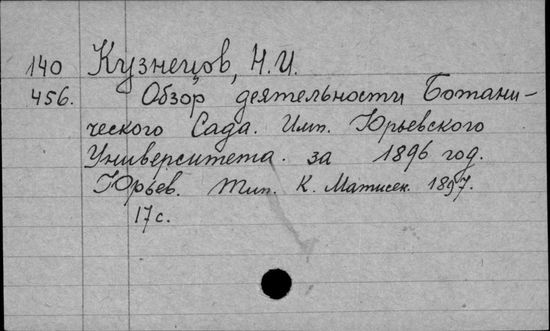 140 Кузнецов, Н.И.
456. Обзор деятельности Ботани-
ческого Сада. Имп. Юрьевского
Университета. за 1896 год.
Юрьев. Тип. К. Матисен. 1897.
17 с.